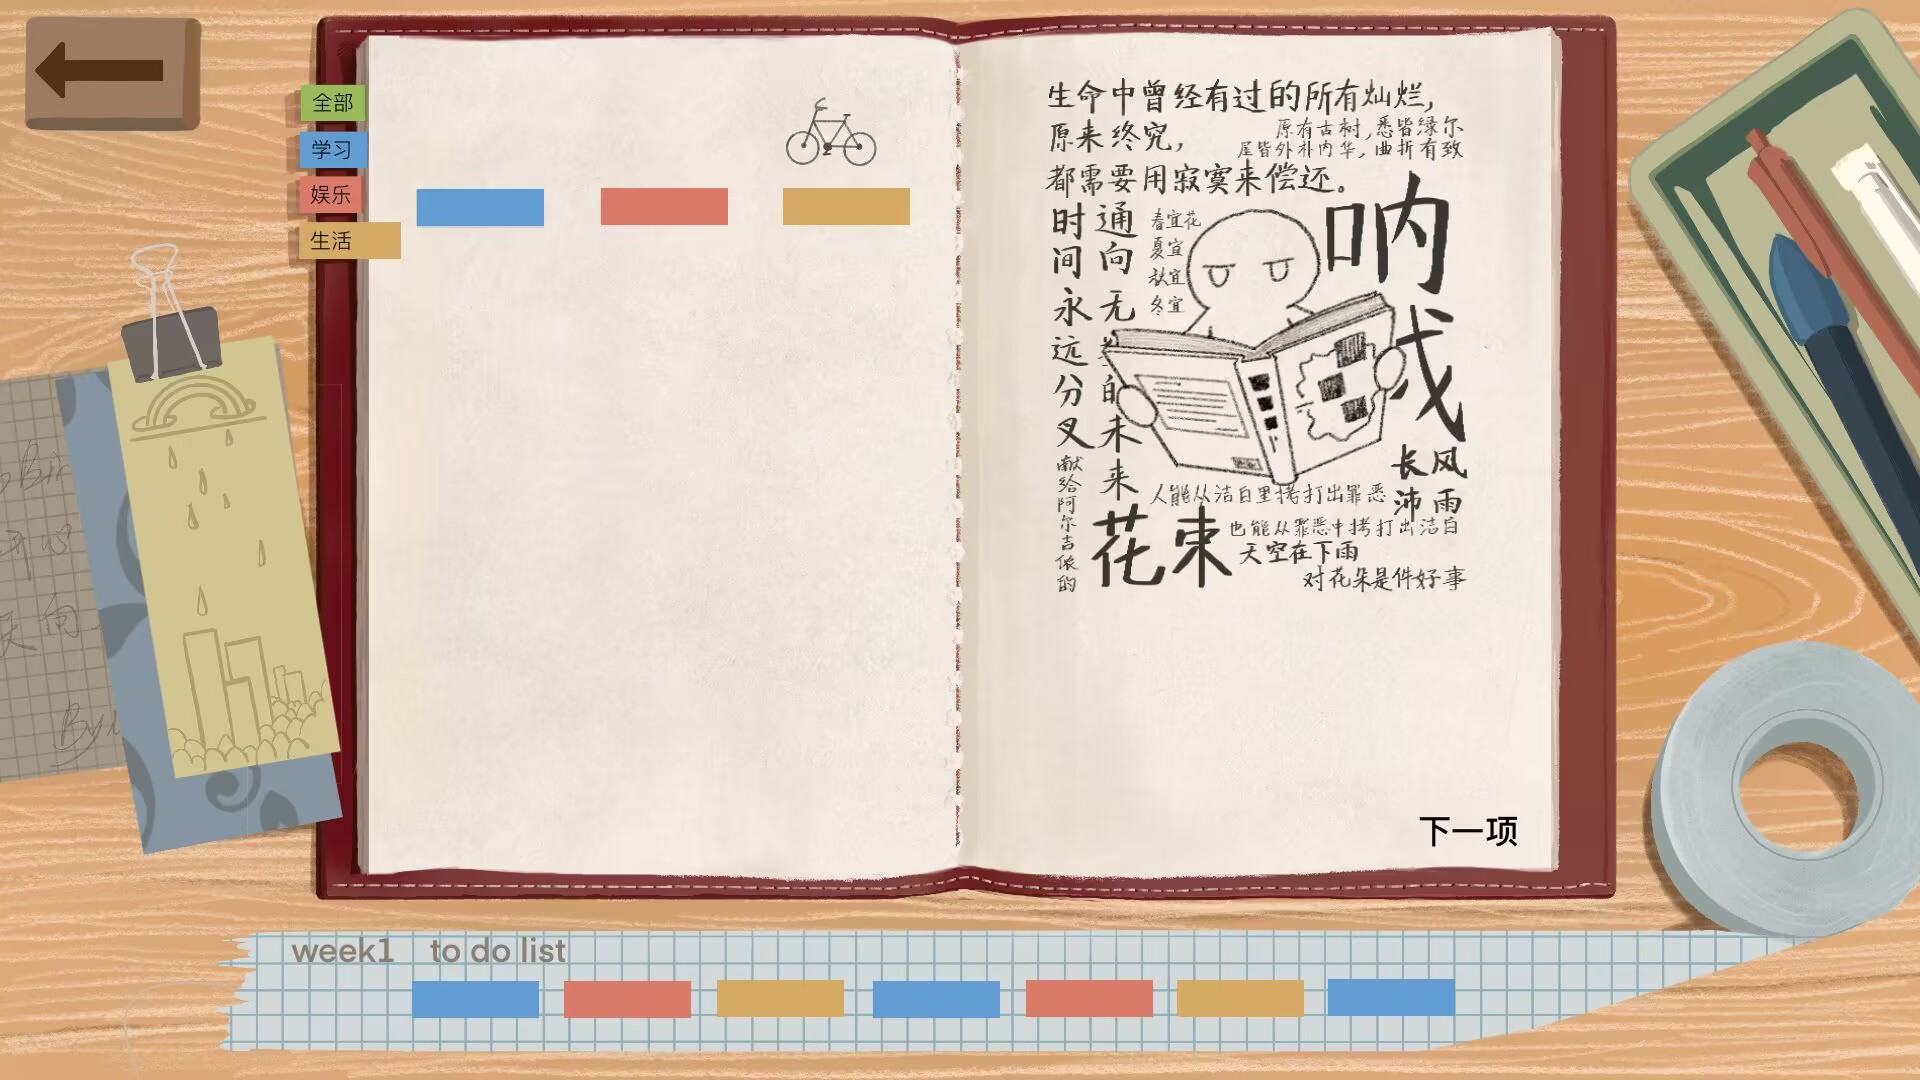 全部
学习
娱乐
生活
生命中曾经有过的所有灿烂,
原来终究,
都需要用寂寞来偿还。
原有古树,悉皆绿尔
屋皆外朴内华,曲折有致
时间永远分叉
通向无
的未来
春宜花
夏宜
秋宜
冬宜
呐
戈
长风
沛雨
献给阿尔吉侬的
花束
人能从洁白里拷打出罪恶
也能从罪恶中拷打出洁白
天空在下雨
对花朵是件好事
下一项
week1 to do list